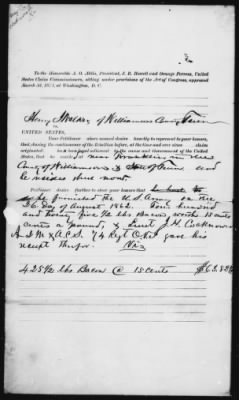 To the Honorable A. O. Aldis, President, J. B. Howell and Orange Ferriss, United
States Claims Commissioners, sitting under provisions of the Act of Congress, approved
March 3d, 1871, at Washington, D. C.
Henry of Williamson County Tenn
UNITED STATES,
Your Petitioner above named desires humbly to represent to your honors,
that during the continuance of the Rebellion, at the time said claim
originated, he a loyal adherent to the cause and Government of the United
States, that he resided near in said
County of Williamson & State of Tenn and
he resides there now
Petitioner desires further to state to your honors that
he furnished the U S Army on the
26 day of August 1862. Four hundred
and twenty five 1/2 lbs Bacon worth 15 cents
a pound, & Lieut J. H.
& A.C.S. 74 Regt gave his
receipt therefor. Viz
425 1/2 lbs Bacon @ 15 cents $63.82 1/2